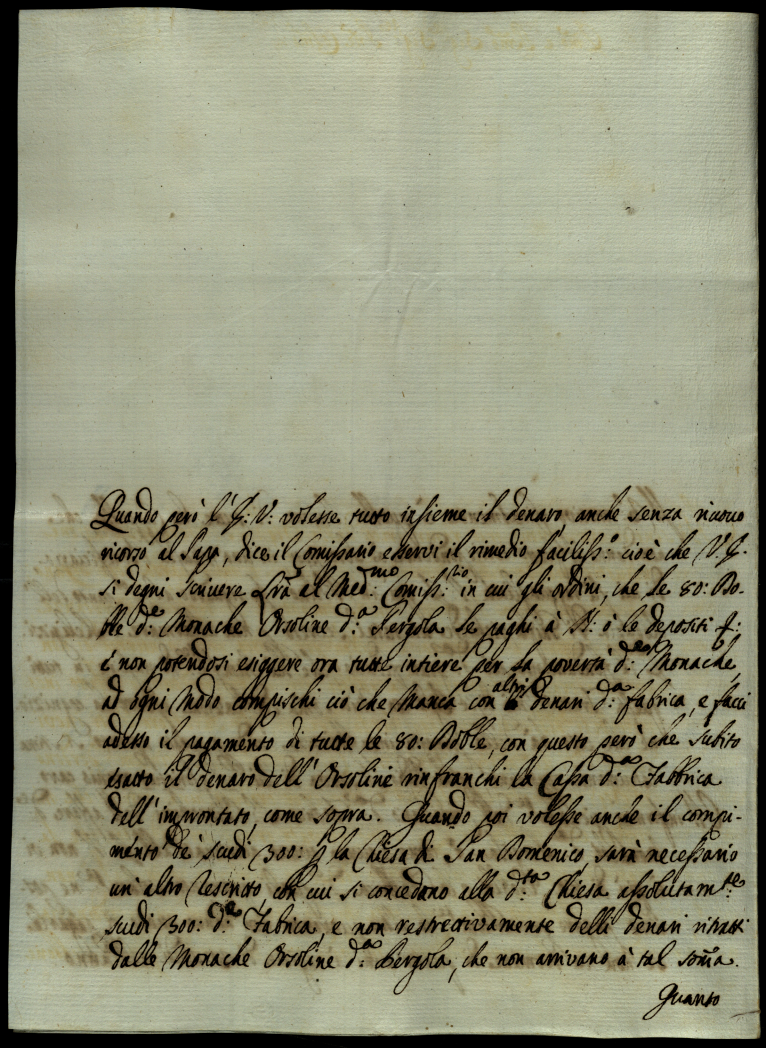 Quando però l'I: V: volesse tutto insieme il denaro, anche senza nuouo
ricorso al Papa, dice il Comissario esserui il rimedio facilliss:º cioè che V: I:
si degni scriuere Lrã al Med:mo Comiss:rio in cui gli ordini, che le 80: Do-
ble d:e Monache Orsoline d:a Pergola le paghi à N: ò le depositi &:
è non potendosi esiggere ora tutte intiere per la pouertà d:e Monache,
ad ogni modo compischi ciò che manca con altri denari d:a fabrica, e facci
adesso il pagamento di tutte le 80: Doble, con questo però che subito
esatto il denaro dell'Orsoline rinfranchi la Cassa d:a Fabbrica
dell'improntato, come sopra. Quando poi volesse anche il compi-
mento de' scudi 300: p la Chiesa di San Domenico, sarà necessario
un'altro Rescritto, con cui si concedano alla d:ta Chiesa assolutam:te
scudi 300: d:a Fabrica, e non restrettiuamente delli denari ritratti
dalle Monache Orsoline d:a Pergola, che non arriuano à tal som̃a.
Quanto